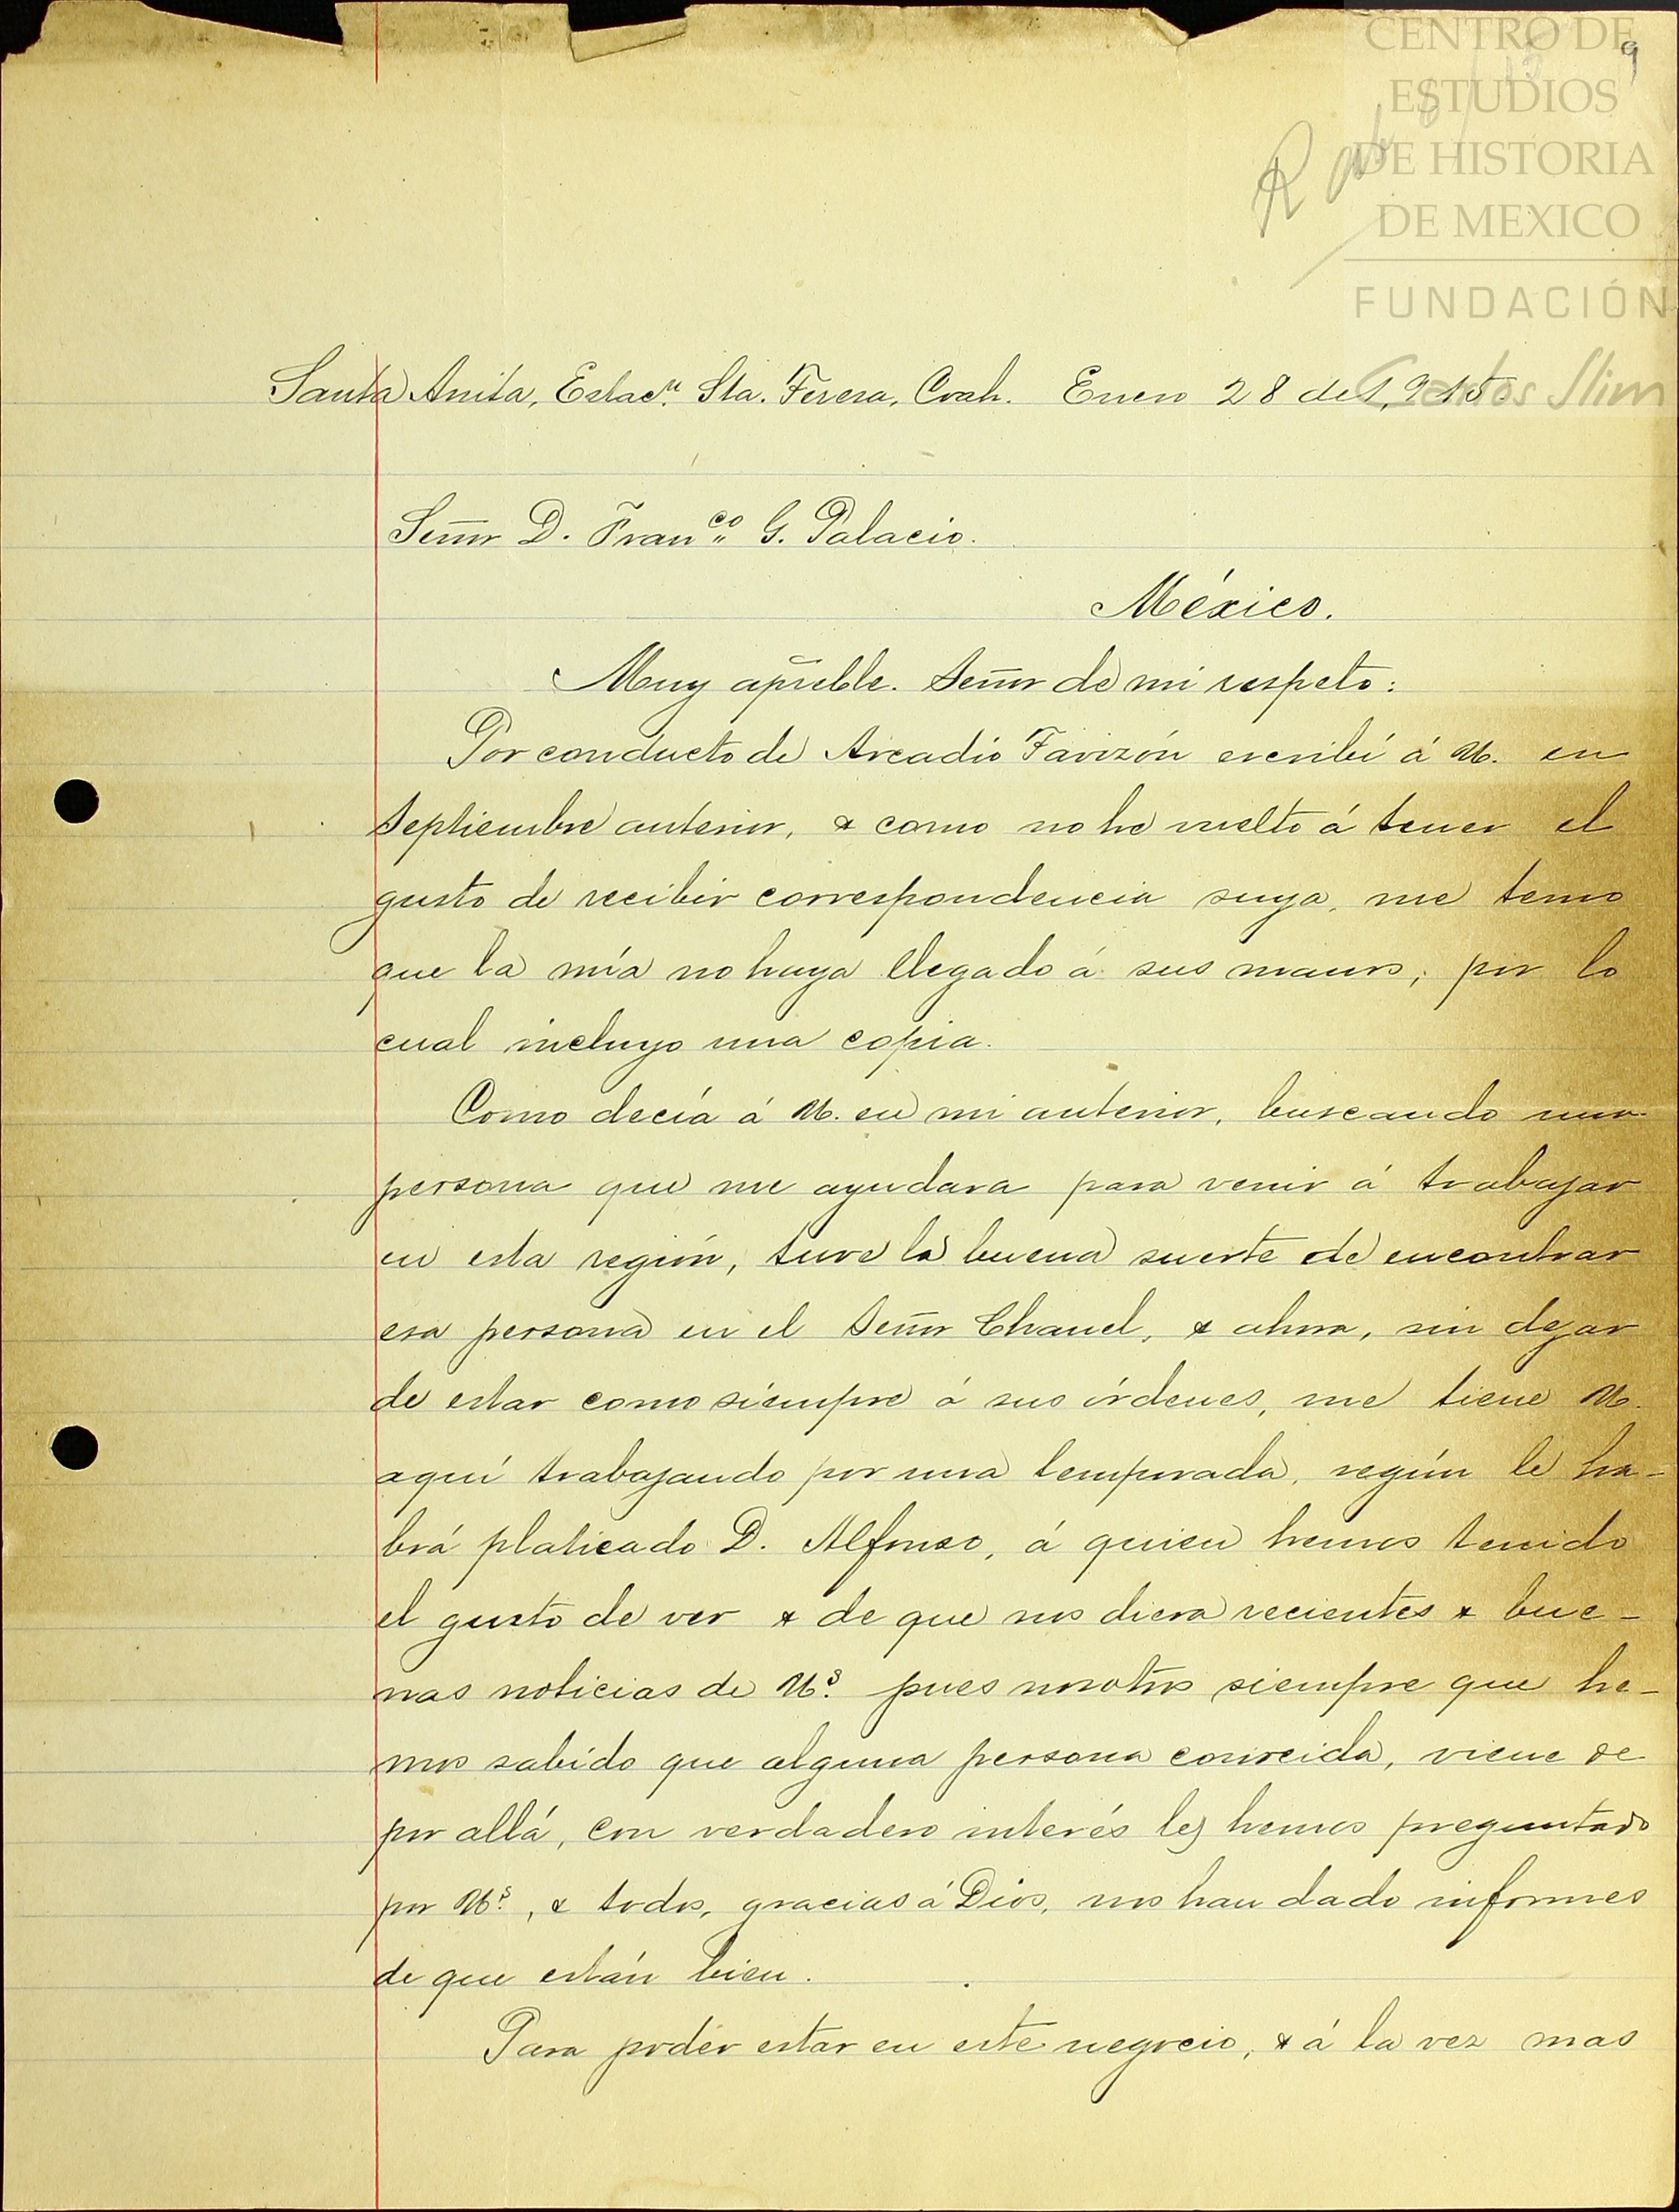 CENTRO DE
ESTUDIOS
DE HISTORIA
DE MEXICO
FUNDACIÓN
Carlos Slim
9
Santa Anita, Estacn. Sta. Teresa, Coah. Enero 28 de 1,915.
Señor D. Franco. G. Palacio.
México.
Muy apreble. Señor de mi respeto:
Por conducto de Arcadio Favizón escribí á U. en
Septiembre anterior, & como no he vuelto á tener el
gusto de recibir correspondencia suya, me temo
que la mía no haya llegado á sus manos; por lo
cual incluyo una copia.
Como decía á U. en mi anterior, buscando una
persona que me ayudara para venir á trabajar
en esta región, tuve la buena suerte de encontrar
esa persona en el Señor Chanel, & ahora, sin dejar
de estar como siempre á sus órdenes, me tiene U.
aquí trabajando por una temporada, según le ha-
brá platicado D. Alfonso, á quien hemos tenido
el gusto de ver & de que nos diera recientes & bue-
nas noticias de Us. pues nosotros siempre que he-
mos sabido que alguna persona conocida, viene de
por allá, con verdadero interés les hemos preguntado
por Us., & todos, gracias á Dios, nos han dado informes
de que están bien.
Para poder estar en este negocio, & á la vez mas